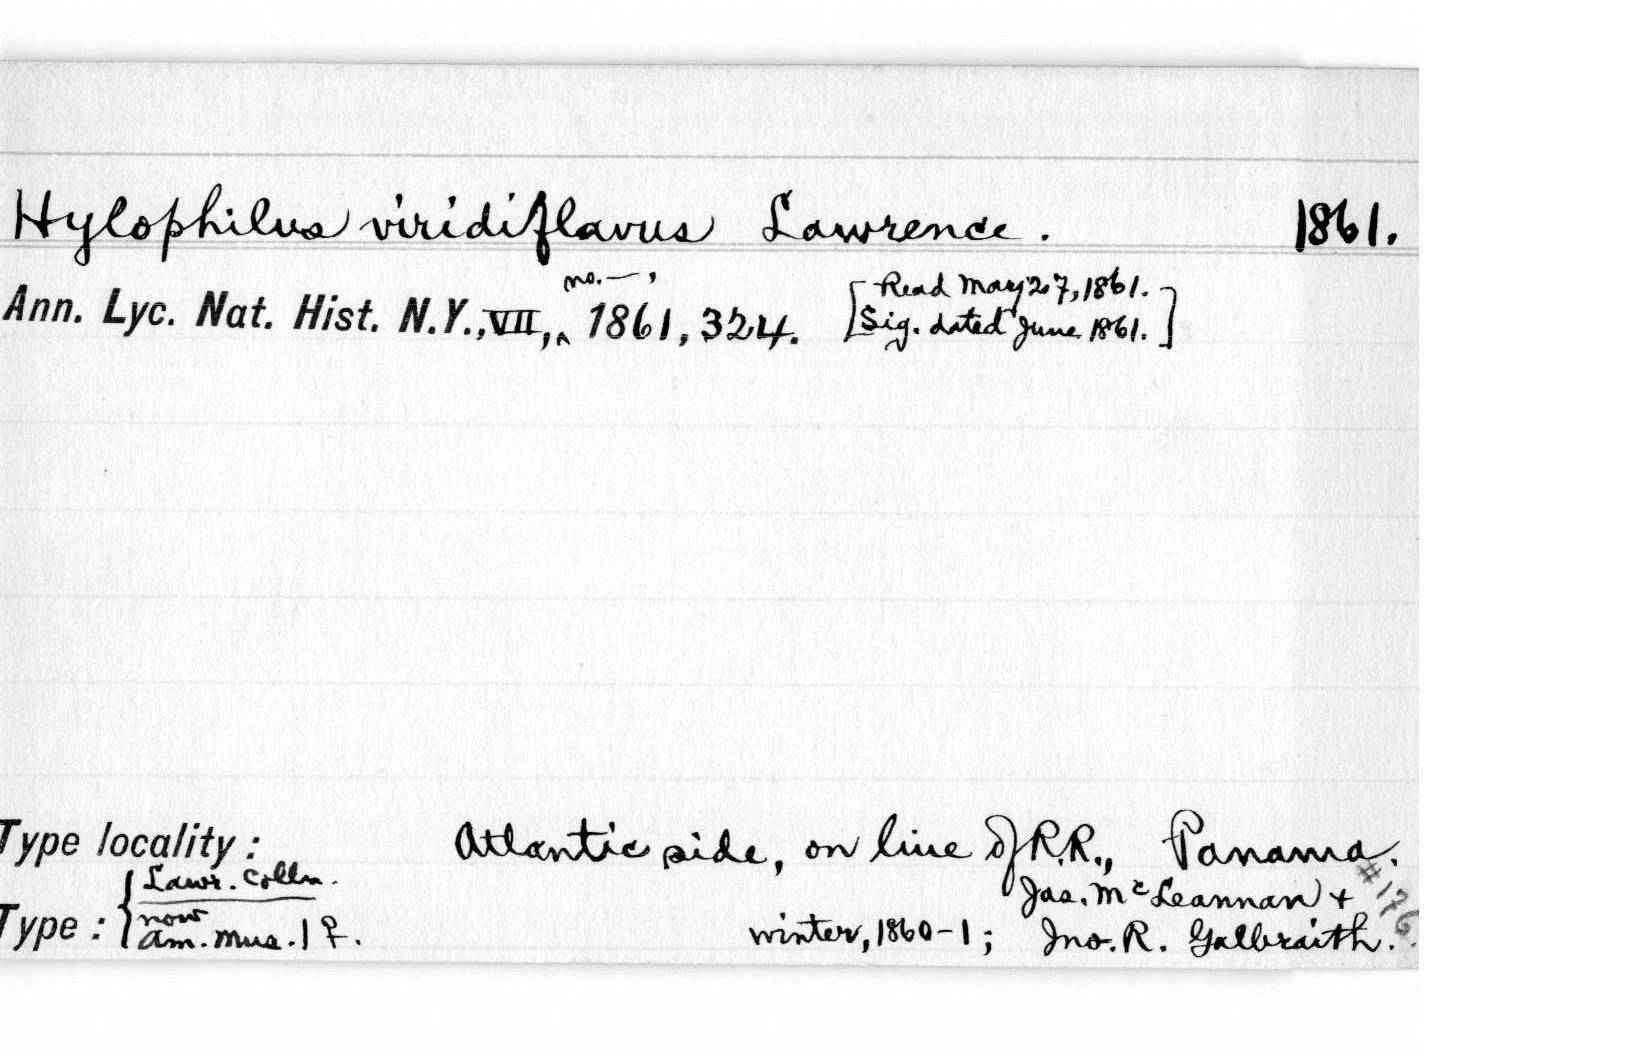 Hylophilus viridiflavus Lawrence. 1861.
no. —,
Ann. Lyc. Nat. Hist. N.Y., VII, ^ 1861, 324. [Read May 27, 1861.
Sig. dated June 1861.]
Type locality: Atlantic side, on line of R.R., Panama.
{Lawr. Colln. Jas. McLeannan + #176
Type: now
Am. Mus. 1 ♀. winter, 1860-1; Jno. R. Galbraith.